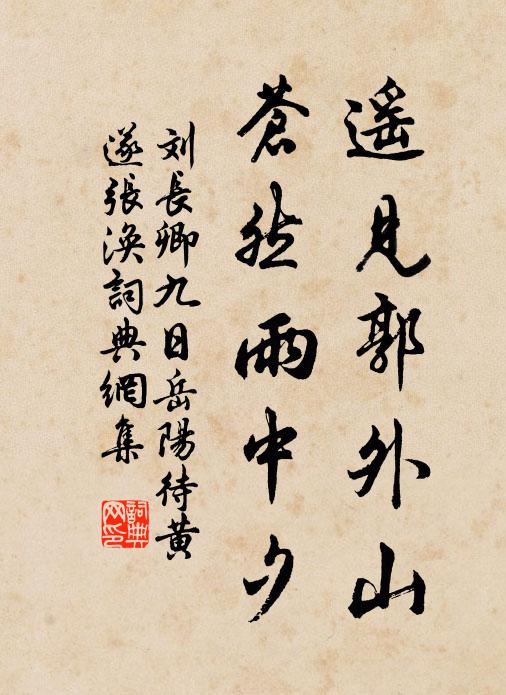 遥見郭外山
蒼然雨中夕
刘長卿九日岳陽待黄
遂張渙詞典網集
詞典
网印